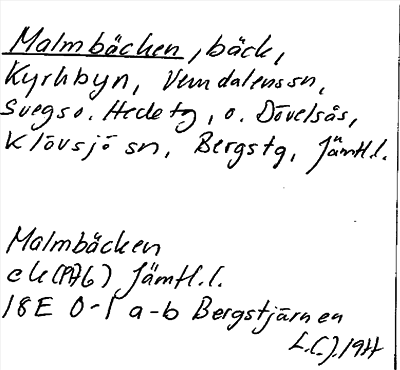 Malmbäcken, bäck,
Kyrkbyn, Vemdalens sn,
Svegs o. Hede tg, o. Dövelsås,
Klövsjö sn, Bergs tg, Jämtl.l.
Malmbäcken
ek (1976) Jämtl.l.
18E 0-1 a-b Bergstjärnen
L.C.J.